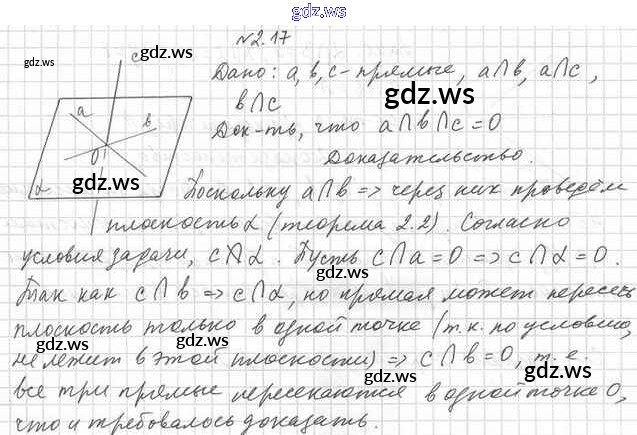 gdz.ws
№2.17
gdz.ws
gdz.ws
c
Дано: a, b, c - прямые, a∩b, a∩c,
b∩c
gdz.ws
Док-ть, что a∩b∩c=0
a
b
0
α
gdz.ws
Доказательство.
Поскольку a∩b => через них проведём
плоскость α (теорема 2.2). Согласно
условия задачи, c α. Пусть c∩a=0 => c∩α=0.
gdz.ws
Так как c∩b => c∩α, но прямая может пересечь
плоскость только в одной точке (т.к. по условию,
не лежит в этой плоскости) => c∩b=0, т.е.
gdz.ws
все три прямые пересекаются в одной точке 0,
что и требовалось доказать.
gdz.ws